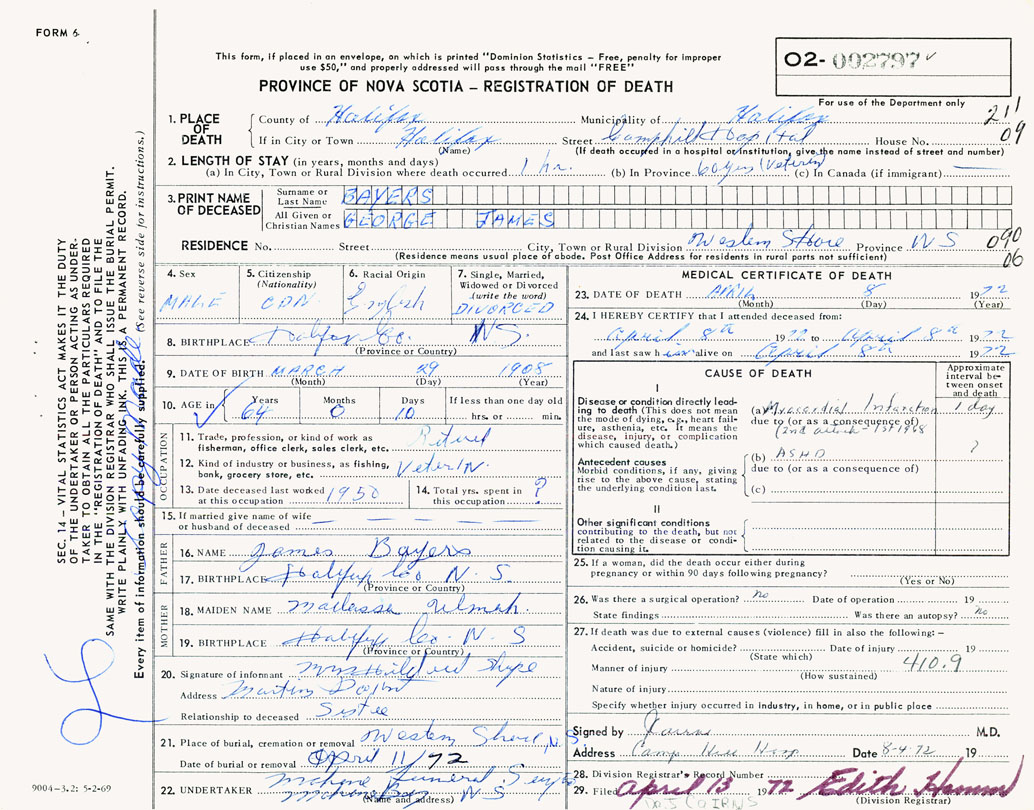 FORM 6
This form, if placed in an envelope, on which is printed "Dominion Statistics – Free, penalty for improper
use $50," and properly addressed will pass through the mail "FREE"
PROVINCE OF NOVA SCOTIA – REGISTRATION OF DEATH
O2- 002797 ✓
For use of the Department only
211
09
1. PLACE OF DEATH
County of Halifax Municipality of Halifax
If in City or Town Halifax Street Camphill Hospital House No.
(Name) (If death occurred in a hospital or institution, give the name instead of street and number)
2. LENGTH OF STAY (in years, months and days)
(a) In City, Town or Rural Division where death occurred 1 hr. (b) In Province 60 yrs (Veteran) (c) In Canada (if immigrant) —
3. PRINT NAME OF DECEASED
Surname or Last Name BAYERS
All Given or Christian Names GEORGE JAMES
RESIDENCE No. Street City, Town or Rural Division Western Shore Province N S
090
06
(Residence means usual place of abode. Post Office Address for residents in rural parts not sufficient)
4. Sex
MALE
5. Citizenship
(Nationality)
CDN
6. Racial Origin
English
7. Single, Married,
Widowed or Divorced
(write the word)
DIVORCED
8. BIRTHPLACE Halifax Co. N.S.
(Province or Country)
9. DATE OF BIRTH MARCH 29 1908
(Month) (Day) (Year)
10. AGE in Years Months Days If less than one day old
64 0 10 hrs. or min.
OCCUPATION
11. Trade, profession, or kind of work as
fisherman, office clerk, sales clerk, etc. Retired
12. Kind of industry or business, as fishing,
bank, grocery store, etc.
13. Date deceased last worked
at this occupation 1950
14. Total yrs. spent in
this occupation ?
15. If married give name of wife
or husband of deceased — — — —
FATHER
16. NAME James Bayers
17. BIRTHPLACE Halifax Co N. S.
(Province or Country)
MOTHER
18. MAIDEN NAME
19. BIRTHPLACE Halifax Co. N. S
(Province or Country)
20. Signature of informant Mrs Hildred
Address Martins Point
Relationship to deceased Sister
21. Place of burial, cremation or removal Western Shore, N. S.
Date of burial or removal April 11/72
22. UNDERTAKER Mahone Funeral Service
Mahone Bay N S
(Name and address)
MEDICAL CERTIFICATE OF DEATH
23. DATE OF DEATH APRIL 8 1972
(Month) (Day) (Year)
24. I HEREBY CERTIFY that I attended deceased from:
April 8th 1972 to April 8th 1972
and last saw him alive on April 8th 1972
CAUSE OF DEATH
Approximate
interval be-
tween onset
and death
I
Disease or condition directly lead-
ing to death (This does not mean
the mode of dying, e.g., heart fail-
ure, asthenia, etc. It means the
disease, injury, or complication
which caused death.)
(a) Myocardial Infarction 1 day
due to (or as a consequence of)
(2nd attack - 1st 1968
?
Antecedent causes
Morbid conditions, if any, giving
rise to the above cause, stating
the underlying condition last.
(b) ASHD
due to (or as a consequence of)
(c)
II
Other significant conditions
contributing to the death, but not
related to the disease or condi-
tion causing it.
25. If a woman, did the death occur either during
pregnancy or within 90 days following pregnancy?
(Yes or No)
26. Was there a surgical operation? No Date of operation 19
State findings Was there an autopsy? No
27. If death was due to external causes (violence) fill in also the following: –
Accident, suicide or homicide? Date of injury 19
(State which)
Manner of injury 410.9
(How sustained)
Nature of injury
Specify whether injury occurred in industry, in home, or in public place
Signed by M.D.
Address Camp Hill Hosp Date 8-4-72 19
28. Division Registrar's Record Number
29. Filed April 13 1972 Edith
(Division Registrar)
CAIRNS
SEC. 14 – VITAL STATISTICS ACT MAKES IT THE DUTY
OF THE UNDERTAKER OR PERSON ACTING AS UNDER-
TAKER TO OBTAIN ALL THE PARTICULARS REQUIRED
IN THE "REGISTRATION OF DEATH" AND TO FILE THE
SAME WITH THE DIVISION REGISTRAR WHO SHALL ISSUE THE BURIAL PERMIT.
WRITE PLAINLY WITH UNFADING INK. THIS IS A PERMANENT RECORD.
Every item of information should be carefully supplied. (See reverse side for instructions.)
9004-3.2: 5-2-69